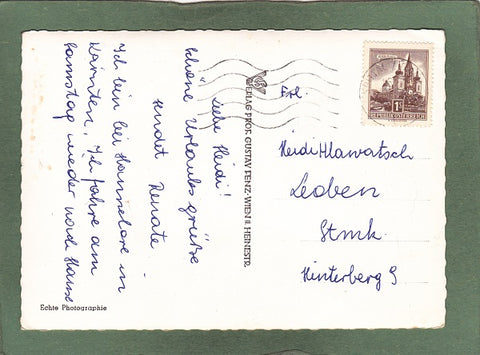 Liebe Heidi!
Schöne Urlaubsgrüße
sendet Renate.
Ich bin bei Hannelore in
Kärnten. Ich fahre am
Samstag wieder nach Hause
Echte Photographie
VERLAG PROF. GUSTAV PENZ-WIEN II, HEINESTR.
1S
REPUBLIK ÖSTERREICH
Frl.
Heidi Hlawatsch
Leoben
Stmk.
Hinterberg 9